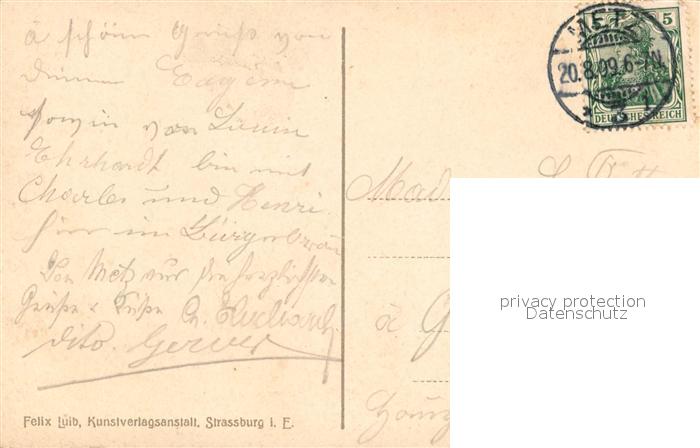 METZ
20.8.09.6-7N.
5
DEUTSCHES REICH
à schöne Gruß von
deinem Eugène
sowie von Louis
Ehrhardt bin mit
Charles und Henri
hier im Bürgerbräu
Von Metz nur die herzlichsten
Grüße & Küße Ch. Ehrhardt
dito. Gerver
Mad
à G
privacy protection
Datenschutz
Felix Luib, Kunstverlagsanstalt, Strassburg i. E.